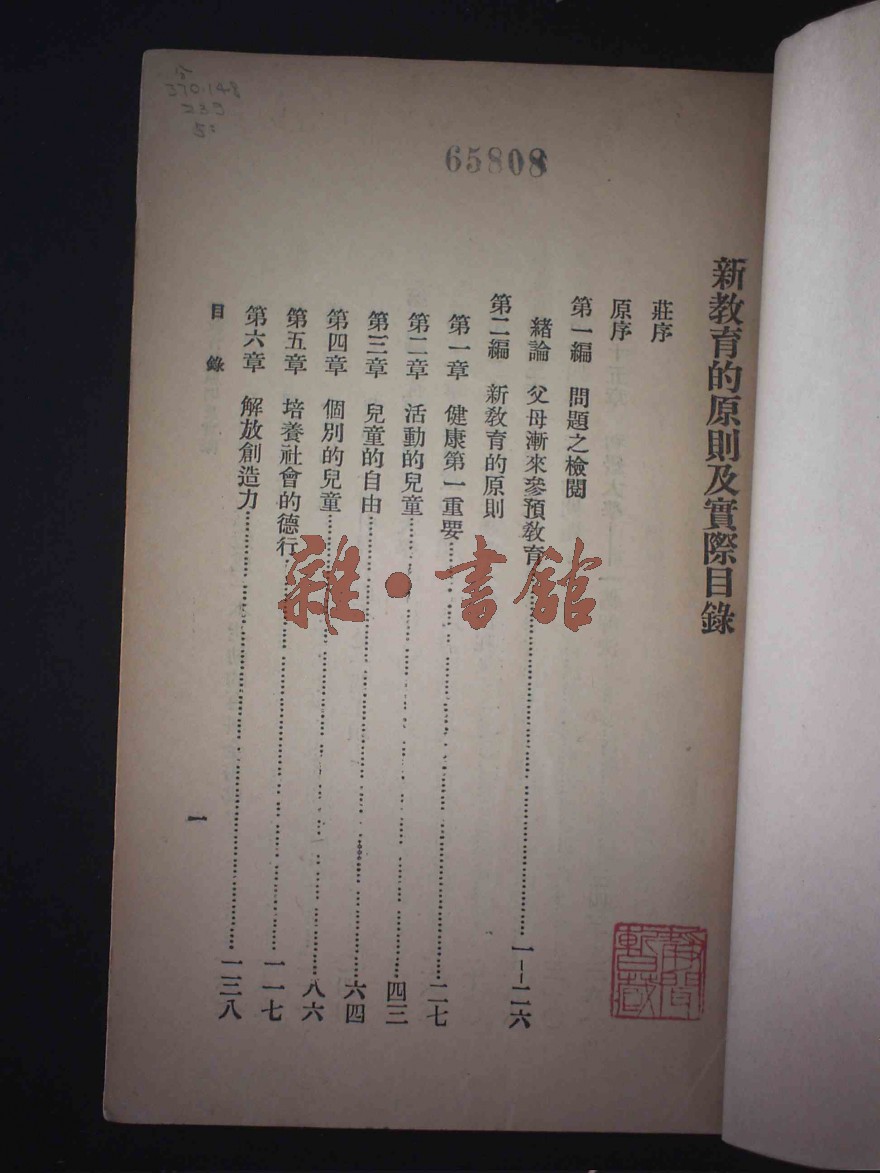 新教育的原則及實際目錄
莊序
原序
第一編 問題之檢閱
緒論 父母漸來參預教育……一—二六
第二編 新教育的原則
第一章 健康第一重要……二七
第二章 活動的兒童……四三
第三章 兒童的自由……六四
第四章 個別的兒童……八六
第五章 培養社會的德行……一一七
第六章 解放創造力……一三八
目錄
一
65808
370.148
239
雜·書館